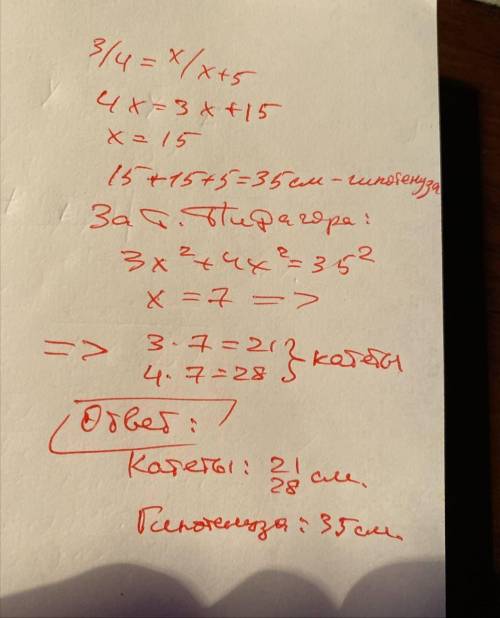 3/4 = x/x+5
4x = 3x+15
x = 15
15+15+5=35см – гипотенуза
За т. Пифагора:
3x²+4x²=35²
x = 7 =>
=> 3·7=21 } катеты
4·7=28
Ответ:
Катеты: 21
28 см.
Гипотенуза: 35см.